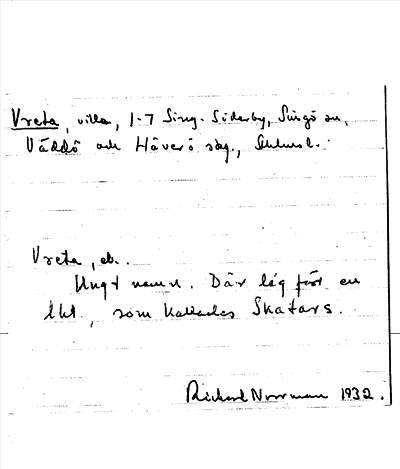 Vreta, villa, 1-7 Sing-Söderby, Singö sn,
Väddö och Häverö skg., Sthlms l.
Vreta, eb.
Ungt namn. Där låg förr en
lht, som kallades Skatars.
Richard Norrman 1932.